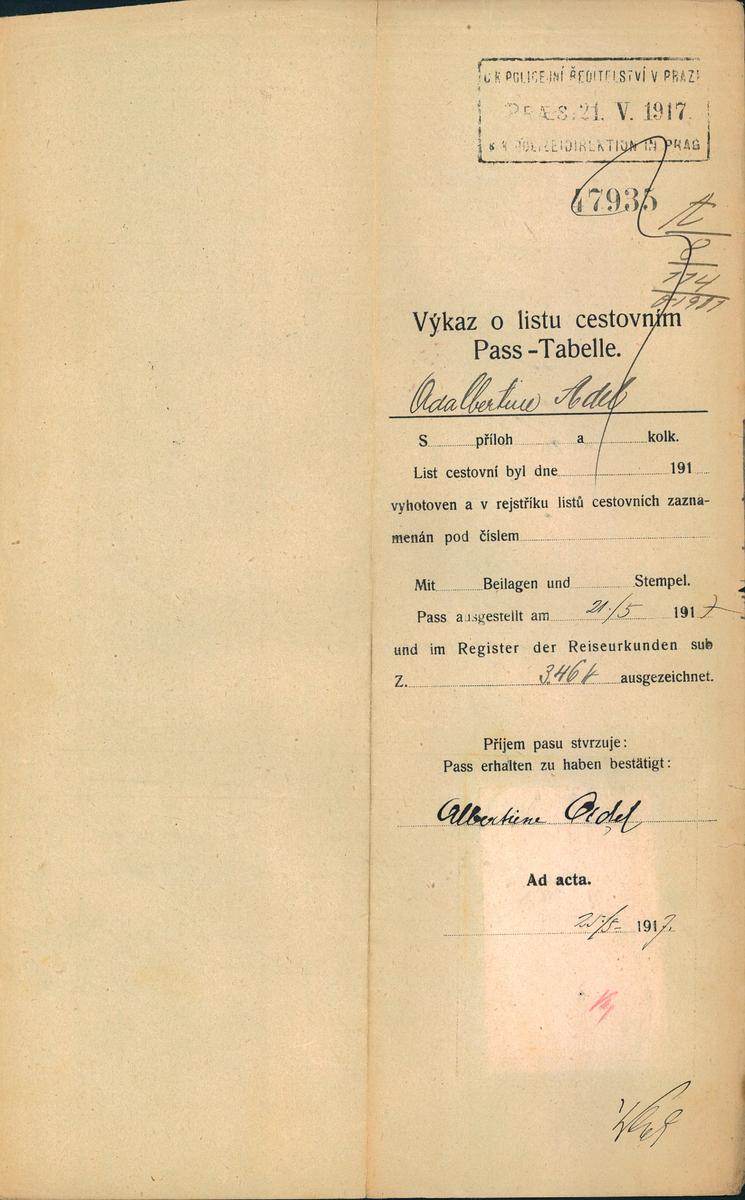 C K POLICEJNÍ ŘEDITELSTVÍ V PRAZE
PRÆS. 21. V. 1917.
K K POLIZEIDIREKTION IN PRAG
47935
A
8
Výkaz o listu cestovním
Pass-Tabelle.
Adalbertine Adel
S příloh a kolk.
List cestovní byl dne 191
vyhotoven a v rejstříku listů cestovních zazna-
menán pod číslem
Mit Beilagen und Stempel.
Pass ausgestellt am 21./5 1917
und im Register der Reiseurkunden sub
Z. 346 ausgezeichnet.
Příjem pasu stvrzuje:
Pass erhalten zu haben bestätigt:
Albertiene Adel
Ad acta.
25./5. 1917.